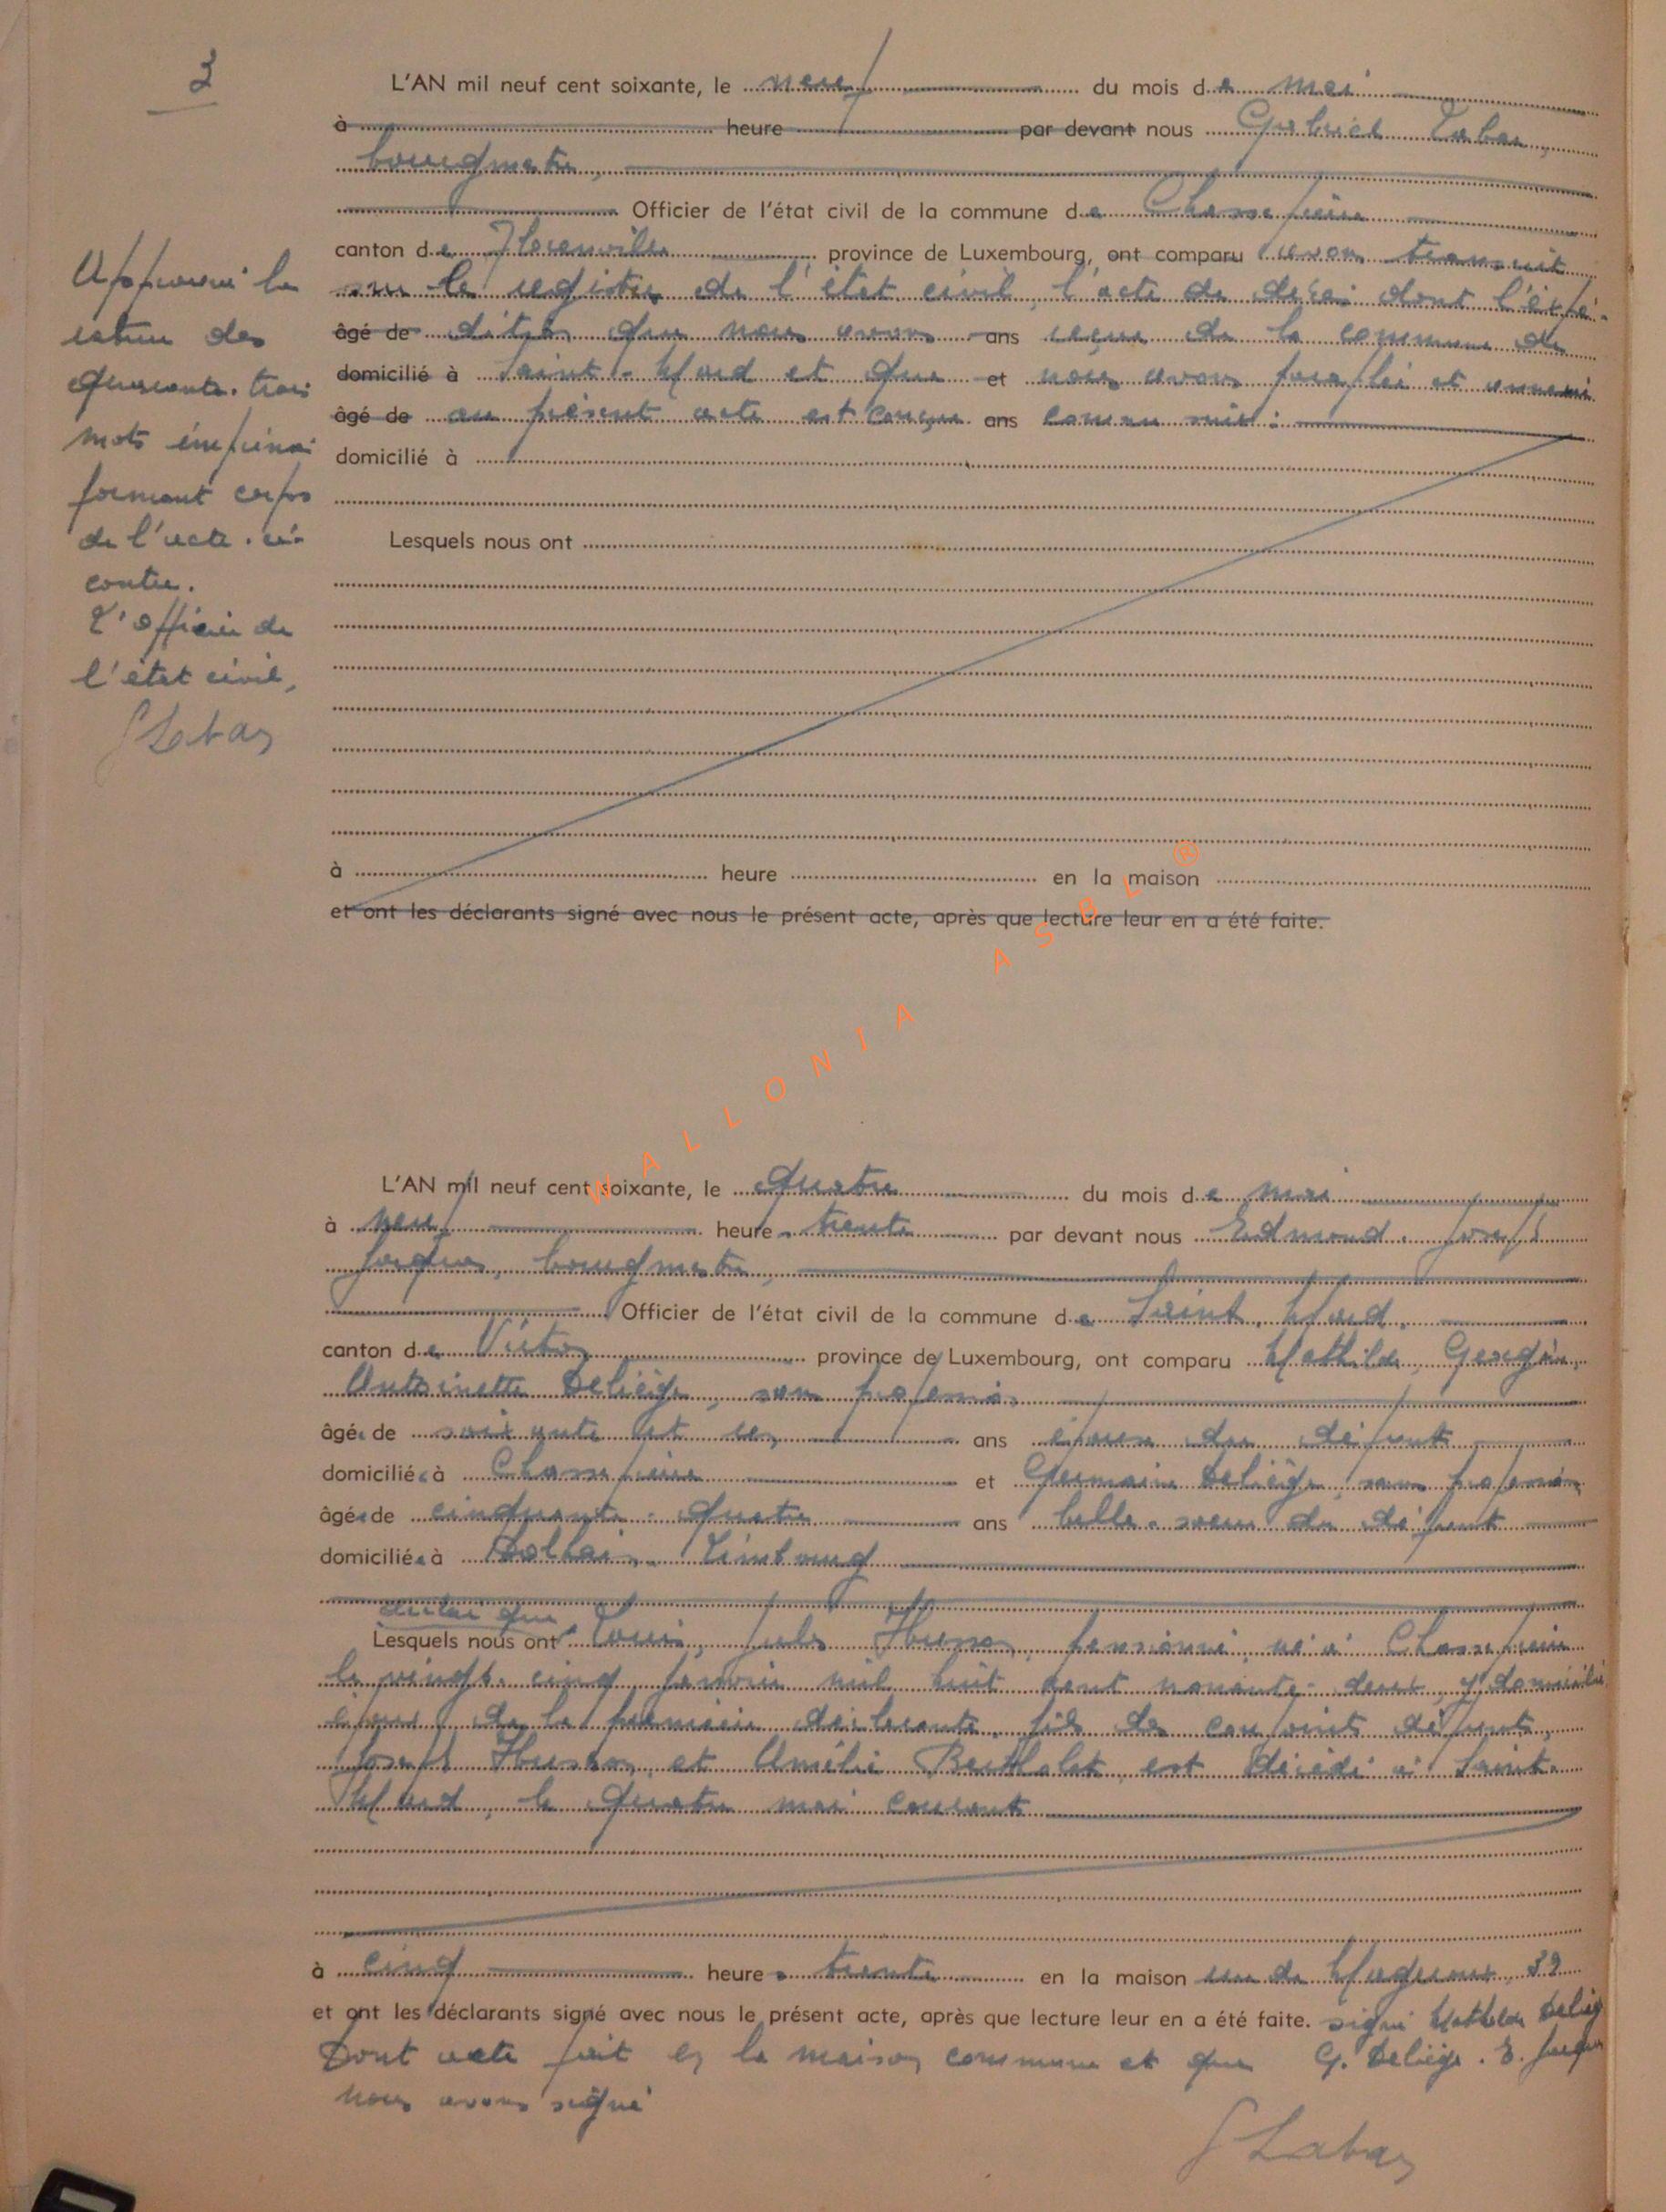 3
L'AN mil neuf cent soixante, le neuf du mois de mai
à heure par devant nous Gabriel Laban,
bourgmestre,
Officier de l'état civil de la commune de Chassepierre
canton de Florenville province de Luxembourg, ont comparu avons transcrit
sur le registre de l'état civil, l'acte de décès dont l'expé-
âgé de dition que nous avons ans reçue de la commune de
domicilié à Saint-Mard et que et nous avons paraphée et annexée
âgé de au présent acte est conçue ans comme suit :
domicilié à
Lesquels nous ont
à heure en la maison
et ont les déclarants signé avec nous le présent acte, après que lecture leur en a été faite.
Approuvé la
rature des
quarante-trois
mots imprimés
formant corps
de l'acte ci-
contre.
L'officier de
l'état civil,
G Laban
WALLONIA ASBL ®
L'AN mil neuf cent soixante, le quatre du mois de mai
à neuf heures trente par devant nous Edmond Joseph
Jacques, bourgmestre,
Officier de l'état civil de la commune de Saint-Mard,
canton de Virton province de Luxembourg, ont comparu Mathilde, Georgine,
Antoinette Deliège, sans profession,
âgée de soixante et un ans épouse du défunt
domiciliée à Chassepierre et Germaine Deliège, sans profession,
âgée de cinquante-quatre ans belle-soeur du défunt
domiciliée à Dolhain-Limbourg
déclaré que
Lesquels nous ont Louis, Jules Husson, pensionné, né à Chassepierre
le vingt-cinq janvier mil huit cent nonante-deux, y domicilié
époux de la première déclarante, fils des conjoints défunts,
Joseph Husson et Amélie Berthelet, est décédé à Saint-
Mard, le quatre mai courant
à cinq heures trente en la maison rue de Mageroux, 39
et ont les déclarants signé avec nous le présent acte, après que lecture leur en a été faite. signé Mathilde Deliège
Dont acte fait en la maison commune et que G. Deliège. E. Jacques
nous avons signé
G Laban